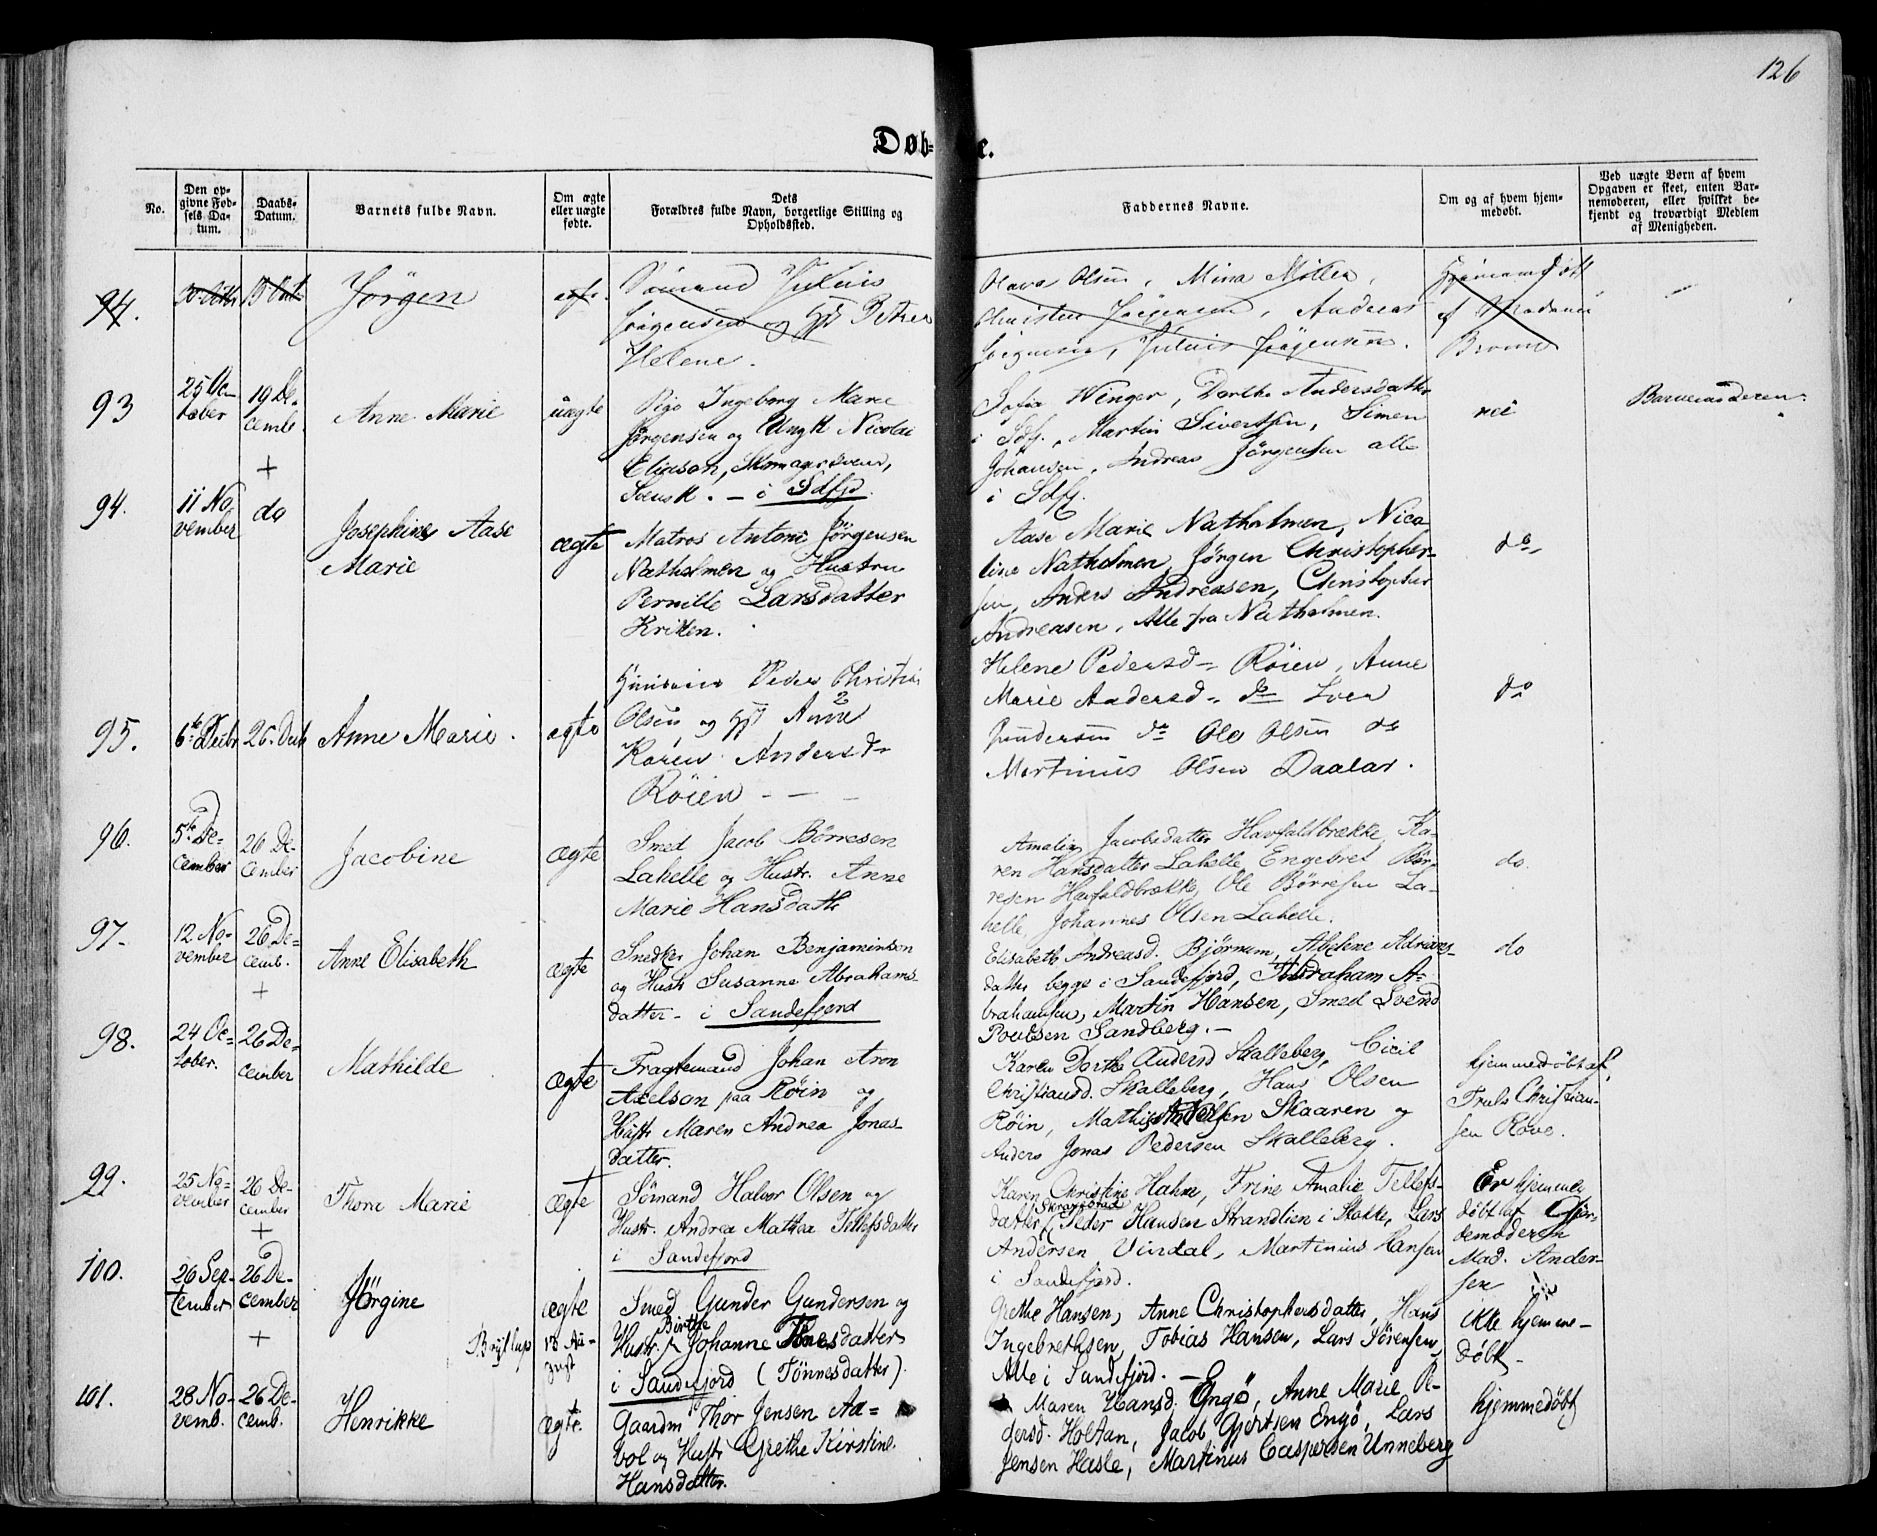 126
Døb- e.
No.
Den op-
givne Fød-
sels Da-
tum.
Daabs-
Datum.
Barnets fulde Navn.
Om ægte
eller uægte
fødte.
Dets
Forældres fulde Navn, borgerlige Stilling og
Opholdssted.
Faddernes Navne.
Om og af hvem hjem-
medøbt.
Ved uægte Børn af hvem
Opgaven er skeet, enten Bar-
nemoderen, eller hvilket be-
kjendt og troværdigt Medlem
af Menigheden.
94.
Jörgen
Sömand Juluis
Jörgensen og Hst Petrea
Helene.
Olava Olsen, Mina Möller,
Christen Jörgensen, Andreas
Jörgensen, Juluis Jörgensen.
Hjemmedöbt
af Madame
93
25 Oc-
tober
19 De-
cemb.
+
Anne Marie
uægte
Pige Ingeborg Marie
Jørgensen og Ungk Nicolai
Eliason, Skomagersvend,
Svensk. – i Sdfjd.
Sofia Winger, Dorthe Andersdatter
i Sdfj., Martin Sivertsen, Simen
Johansen, Andreas Jörgensen alle
i Sdfj.
nei
Barnemoderen.
94.
11 No
vember
do
Josephine Aase
Marie
ægte
Matros Anton Jørgensen
Natholmen og Hustru
Pernille Larsdatter
Krikken.
Aase Marie Natholmen, Nico
line Natholmen, Jørgen Christopher-
sen, Anders Andreasen, Christopher
Andreasen, Alle fra Natholmen.
do
95.
6te Decbr
26. Decb
Anne Marie.
ægte
Huusmand Peder Christian
Olsen og Hst Anne
Karen Andersd
Röien – –
Helene Pedersd – Röien, Anne
Marie Andersd – do Iver
Gundersen do Ole Olsen do
Martinus Olsen Daalar.
do
96.
5te De-
cember
26 De-
cember
Jacobine
ægte
Smed Jacob Börresen
Lahelle og Hustr. Anne
Marie Hansdattr
Amalia Jacobsdatter Havfaldbrække, Ka-
ren Hansdatter Lahelle, Engebret Bør-
resen Havfaldbrække, Ole Børresen La-
helle, Johannes Olsen Lahelle.
do.
97.
12 No-
vember
26 De-
cemb.
+
Anne Elisabeth
ægte
Snedker Johan Benjaminson
og Hustr Susanne Abrahams-
datter – i Sandefjord
Elisabeth Andreasd. Bjørnum, Abelene Adrians-
datter begge i Sandefjord, Abraham A-
brahamsen, Martin Hansen, Smed Svend
Poulsen Sandberg. –
do
98.
24 Oc-
tober.
26 De-
cember
Mathilde
ægte
Fragtemand Johan Aron
Axelson paa Røin og
Hustr Maren Andrea Jonas
datter.
Karen Dorthe Andersd Skalleberg, Cicil
Christiansd. Skalleberg, Hans Olsen
Röin, Mathis Andersen Skaaren og
Anders Jonas Pedersen Skalleberg.
hjemmedøbt af
Truls Christian-
sen Rove.
99.
25 No-
vember
26 De-
cember
+
Thora Marie
ægte
Sömand Halvor Olsen og
Hustr. Andrea Mathea Tellefsdatter
i Sandefjord
Karen Christine Holm, Trine Amalie Tellefs-
datter, Peder Hansen Strandlien i Stokke, Lars
Andersen Vindal, Martinius Hansen
i Sandefjord.
Er hjemme
døbt af Gjor-
demoderen
Mad. Ander-
sen
100.
26 Sep-
tember
26 De-
cember
+
Jörgine
Bryllup
13 Au-
gust
ægte
Smed Gunder Gundersen og
Birthe
Hustr. Johanne Tönesdatter
i Sandefjord (Tönnesdatter).
Grethe Hansen, Anne Christophersdatter, Hans
Ingebrethsen, Tobias Hansen, Lars Sörensen,
Alle i Sandefjord. –
ikke hjemme-
døbt –
101.
28 No-
vemb.
26 De-
cemb.
Henrikke
ægte.
Gaardm Thor Jensen Aa-
vol og Hustr Grethe Kirstine
Hansdatter.
Maren Hansd. Engö, Anne Marie Pe-
dersd. Holtan, Jacob Gjertsen Engö, Lars
Jensen Hasle, Martinus Caspersen Unneberg
hjemmedøbt